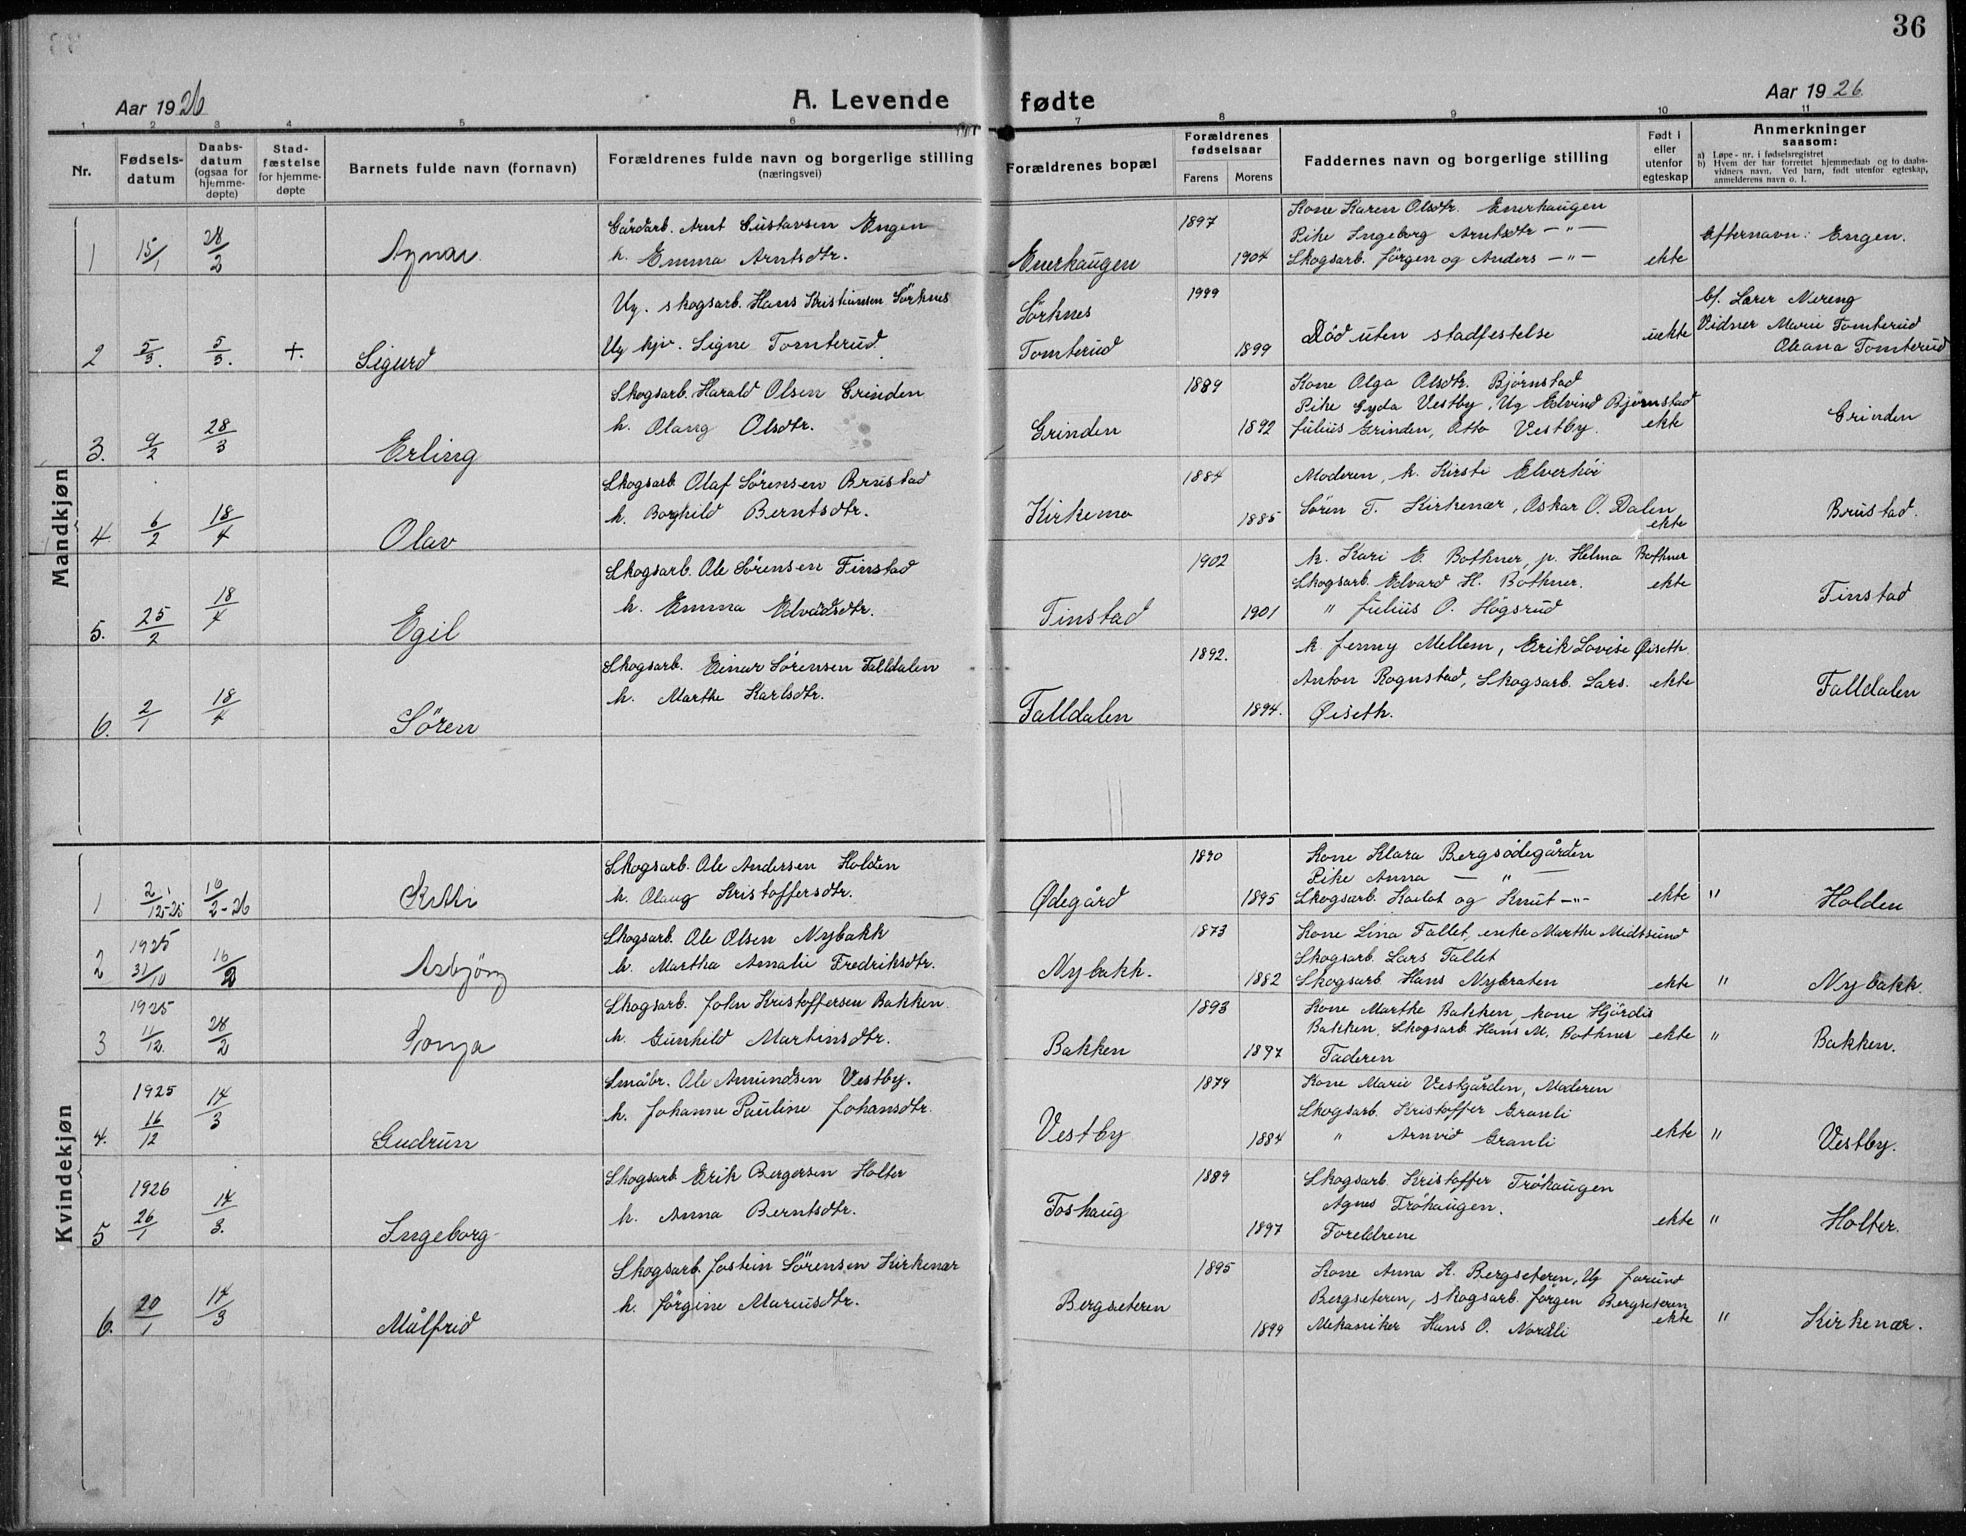 36
Aar 1926
A. Levende fødte
Aar 1926
1 2 3 4 5 6 7 8 9 10 11
Nr.
Fødsels-datum
Daabs-datum (ogsaa for hjemme-døpte)
Stad-fæstelse for hjemme-døpte
Barnets fulde navn (fornavn)
Forældrenes fulde navn og borgerlige stilling (næringsvei)
Forældrenes bopæl
Forældrenes fødselsaar
Farens Morens
Faddernes navn og borgerlige stilling
Født i eller utenfor egteskap
Anmerkninger saasom:
a) Løpe-nr. i fødselsregistret
b) Hvem der har forrettet hjemmedaab og to daabs-vidners navn. Ved barn, født utenfor egteskap, anmelderens navn o. l.
Mandkjøn
1 15/1 28/2 Aynar
Gårdarb. Arnt Gustavsen Engen
h. Emma Arntsdtr.
Enerhaugen 1897 1904
Kone Karen Olsdtr. Enerhaugen
Pike Ingeborg Arntsdtr —"—
Skogsarb. Jørgen og Anders —"— ekte
Efternavn: Engen.
2 5/3. 5/3. +. Sigurd
Ug. skogsarb. Hans Kristiansen Sörknes
Ug kjv. Signe Tomterud
Sörknes
Tomterud 1999 1899
Död uten stadfestelse uekte
b/. Lærer Nereng
Vidner Marie Tomterud
Oleana Tomterud
3. 9/2 28/3 Erling
Skogsarb. Harald Olsen Grinden
h. Olaug Olsdtr.
Grinden 1889 1892
Kone Olga Olsdtr. Bjørnstad
Pike Gyda Vestby, Ug Edvind Bjørnstad
Julius Grinden, Otto Vestby. ekte
Grinden
4. 6/2 18/4 Olav
Skogsarb. Olaf Sørensen Brustad
h. Borghild Berntsdtr.
Kirkemo 1884 1885
Moderen, k. Kirsti Elverhöi
Søren T. Kirkenær, Oskar O. Dalen
ekte
Brustad.
5. 25/2 18/4 Egil
Skogsarb. Ole Sørensen Finstad
h. Emma Edvardsdtr.
Finstad 1902 1901
k. Kari E. Bothner, p. Helma Bothner
Skogsarb. Edvard H. Bothner. ekte
" Julius O. Högsrud
Finstad
6. 2/1 18/4 Sören
Skogsarb. Einar Sørensen Falldalen
h. Marthe Karlsdtr.
Falldalen 1892. 1894.
k. Jenny Mellem, Erik Lovise Øiseth.
Anton Rognstad, Skogsarb. Lars. ekte
Øiseth.
Falldalen
Kvindekjøn
1 2/12-25 16/2-26
Skogsarb. Ole Andersen Holden
h. Olaug Kristoffersdtr.
Ødegård 1890 1895
Kone Klara Bergsödegården
Pike Anna — " —
Skogsarb. Karlot og Knut —"— ekte
" Holden
2 1925 31/10 16/2 Asbjörg
Skogsarb. Ole Olsen Nybakk
h. Martha Amalie Fredriksdtr.
Nybakk. 1873 1882
Kone Lina Fallet, enke Marthe Midtsund
Skogsarb. Lars Fallet
Skogsarb. Hans Nybraten ekte
" Nybakk.
3 1925 11/12. 28/2 Sonja
Skogsarb. John Kristoffersen Bakken.
h. Gunhild Martinsdtr.
Bakken 1893 1897
Kone Marthe Bakken, kone Hjördis
Bakken, Skogsarb. Hans M. Bothner ekte
Faderen
" Bakken.
4. 1925 16/12 14/3 Gudrun
Småbr. Ole Amundsen Vestby.
h. Johanne Pauline Johansdtr.
Vestby 1879 1884
Kone Marie Vestgården, Moderen
Skogsarb. Kristoffer Granli
" Arnvid Granli ekte
" Vestby.
5 1926 26/1 14/3. Ingeborg
Skogsarb. Erik Bergersen Holter
h. Anna Berntsdtr.
Foshaug 1889 1897
Skogsarb. Kristoffer Tröhaugen
Agnes Tröhaugen.
Foreldrene ekte
" Holter.
6. 20/1 14/3 Målfrid
Skogsarb. Jostein Sörensen Kirkenær
h. Jörgine Mariusdtr.
Bergseteren 1895 1899
Kone Anna K. Bergseteren, Ug Jorund
Bergseteren, skogsarb. Jörgen Bergseteren
Mekaniker Hans O. Nordli ekte
" Kirkenær.